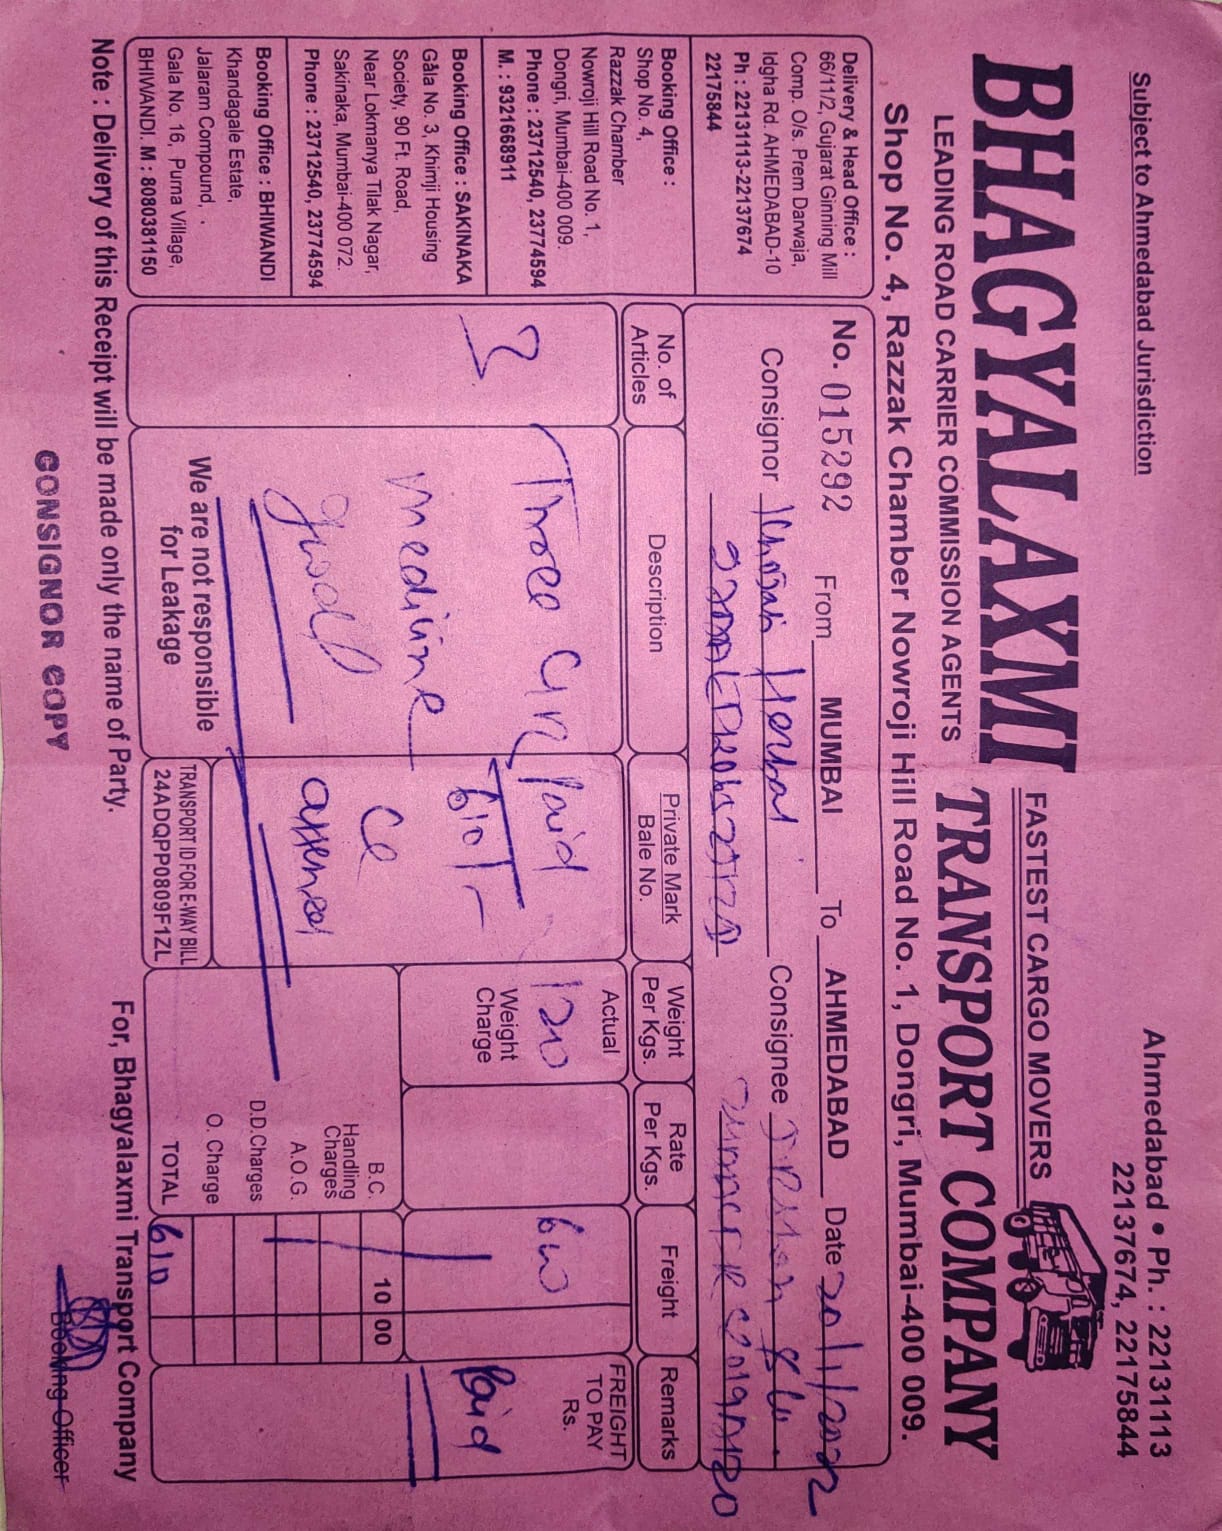 Subject to Ahmedabad Jurisdiction
Ahmedabad • Ph. : 22131113
22137674, 22175844
BHAGYALAXMI
FASTEST CARGO MOVERS
LEADING ROAD CARRIER COMMISSION AGENTS
TRANSPORT COMPANY
Shop No. 4, Razzak Chamber Nowroji Hill Road No. 1, Dongri, Mumbai-400 009.
Delivery & Head Office :
66/11/2, Gujarat Ginning Mill
Comp. O/s. Prem Darwaja,
Idgha Rd. AHMEDABAD-10
Ph : 22131113-22137674
22175844
Booking Office :
Shop No. 4,
Razzak Chamber
Nowroji Hill Road No. 1,
Dongri, Mumbai-400 009.
Phone : 23712540, 23774594
M. : 9321668911
Booking Office : SAKINAKA
Gala No. 3, Khimji Housing
Society, 90 Ft. Road,
Near Lokmanya Tilak Nagar,
Sakinaka, Mumbai-400 072.
Phone : 23712540, 23774594
Booking Office : BHIWANDI
Khandagale Estate,
Jalaram Compound,
Gala No. 16, Purna Village,
BHIWANDI. M : 8080381150
No. 015292 From MUMBAI To AHMEDABAD Date 20/1/2022
Consignor Herbal Consignee
No. of Articles
Description
Private Mark
Bale No.
Weight
Per Kgs.
Rate
Per Kgs.
Freight
Remarks
3
Three
medicine
good
We are not responsible
for Leakage
Paid
610/-
TRANSPORT ID FOR E-WAY BILL
24ADQPP0809F1ZL
Actual
120
Weight
Charge
600
FREIGHT
TO PAY
Rs.
Paid
B.C. 10 00
Handling
Charges
A.O.G.
D.D.Charges
O. Charge
TOTAL 610
Note : Delivery of this Receipt will be made only the name of Party.
For, Bhagyalaxmi Transport Company
CONSIGNOR COPY
Booking Officer